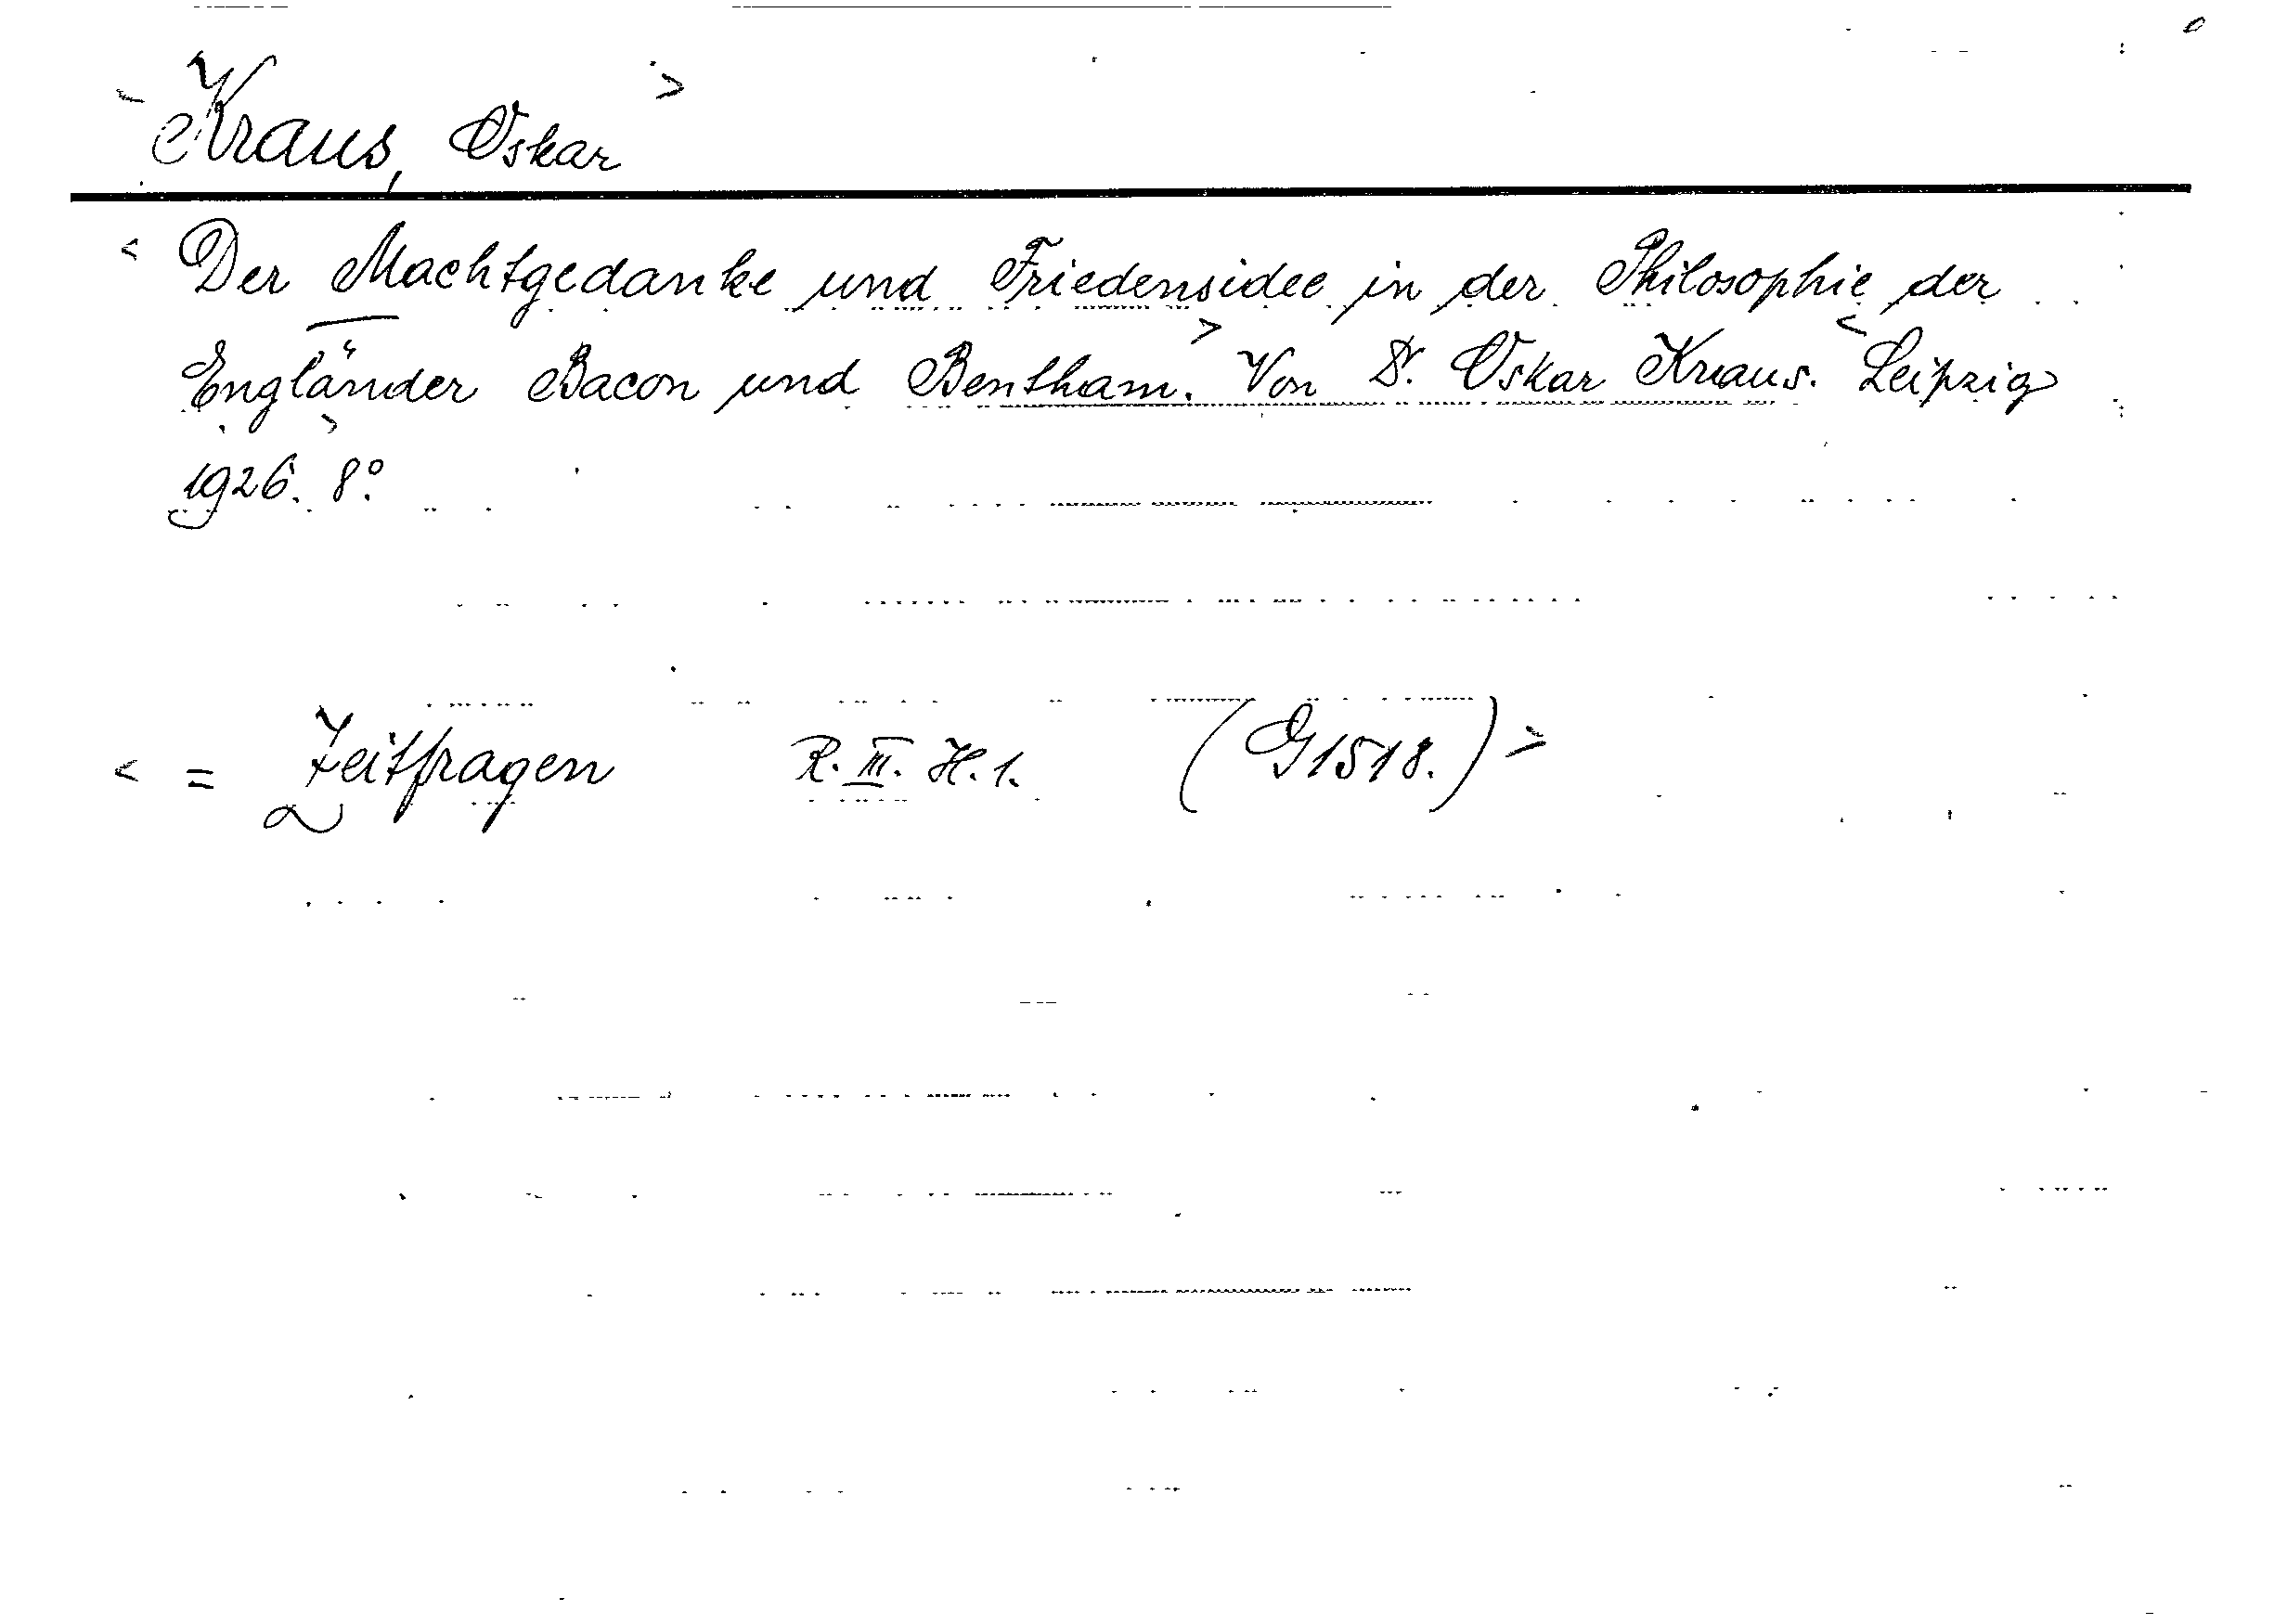 < Kraus, Oskar >
< Der Machtgedanke und Friedensidee in der Philosophie der
Engländer Bacon und Bentham. > Von Dr. Oskar Kraus. < Leipzig
1926. > 8°.
< = Zeitfragen R. III. H. 1. (G 1518.) >